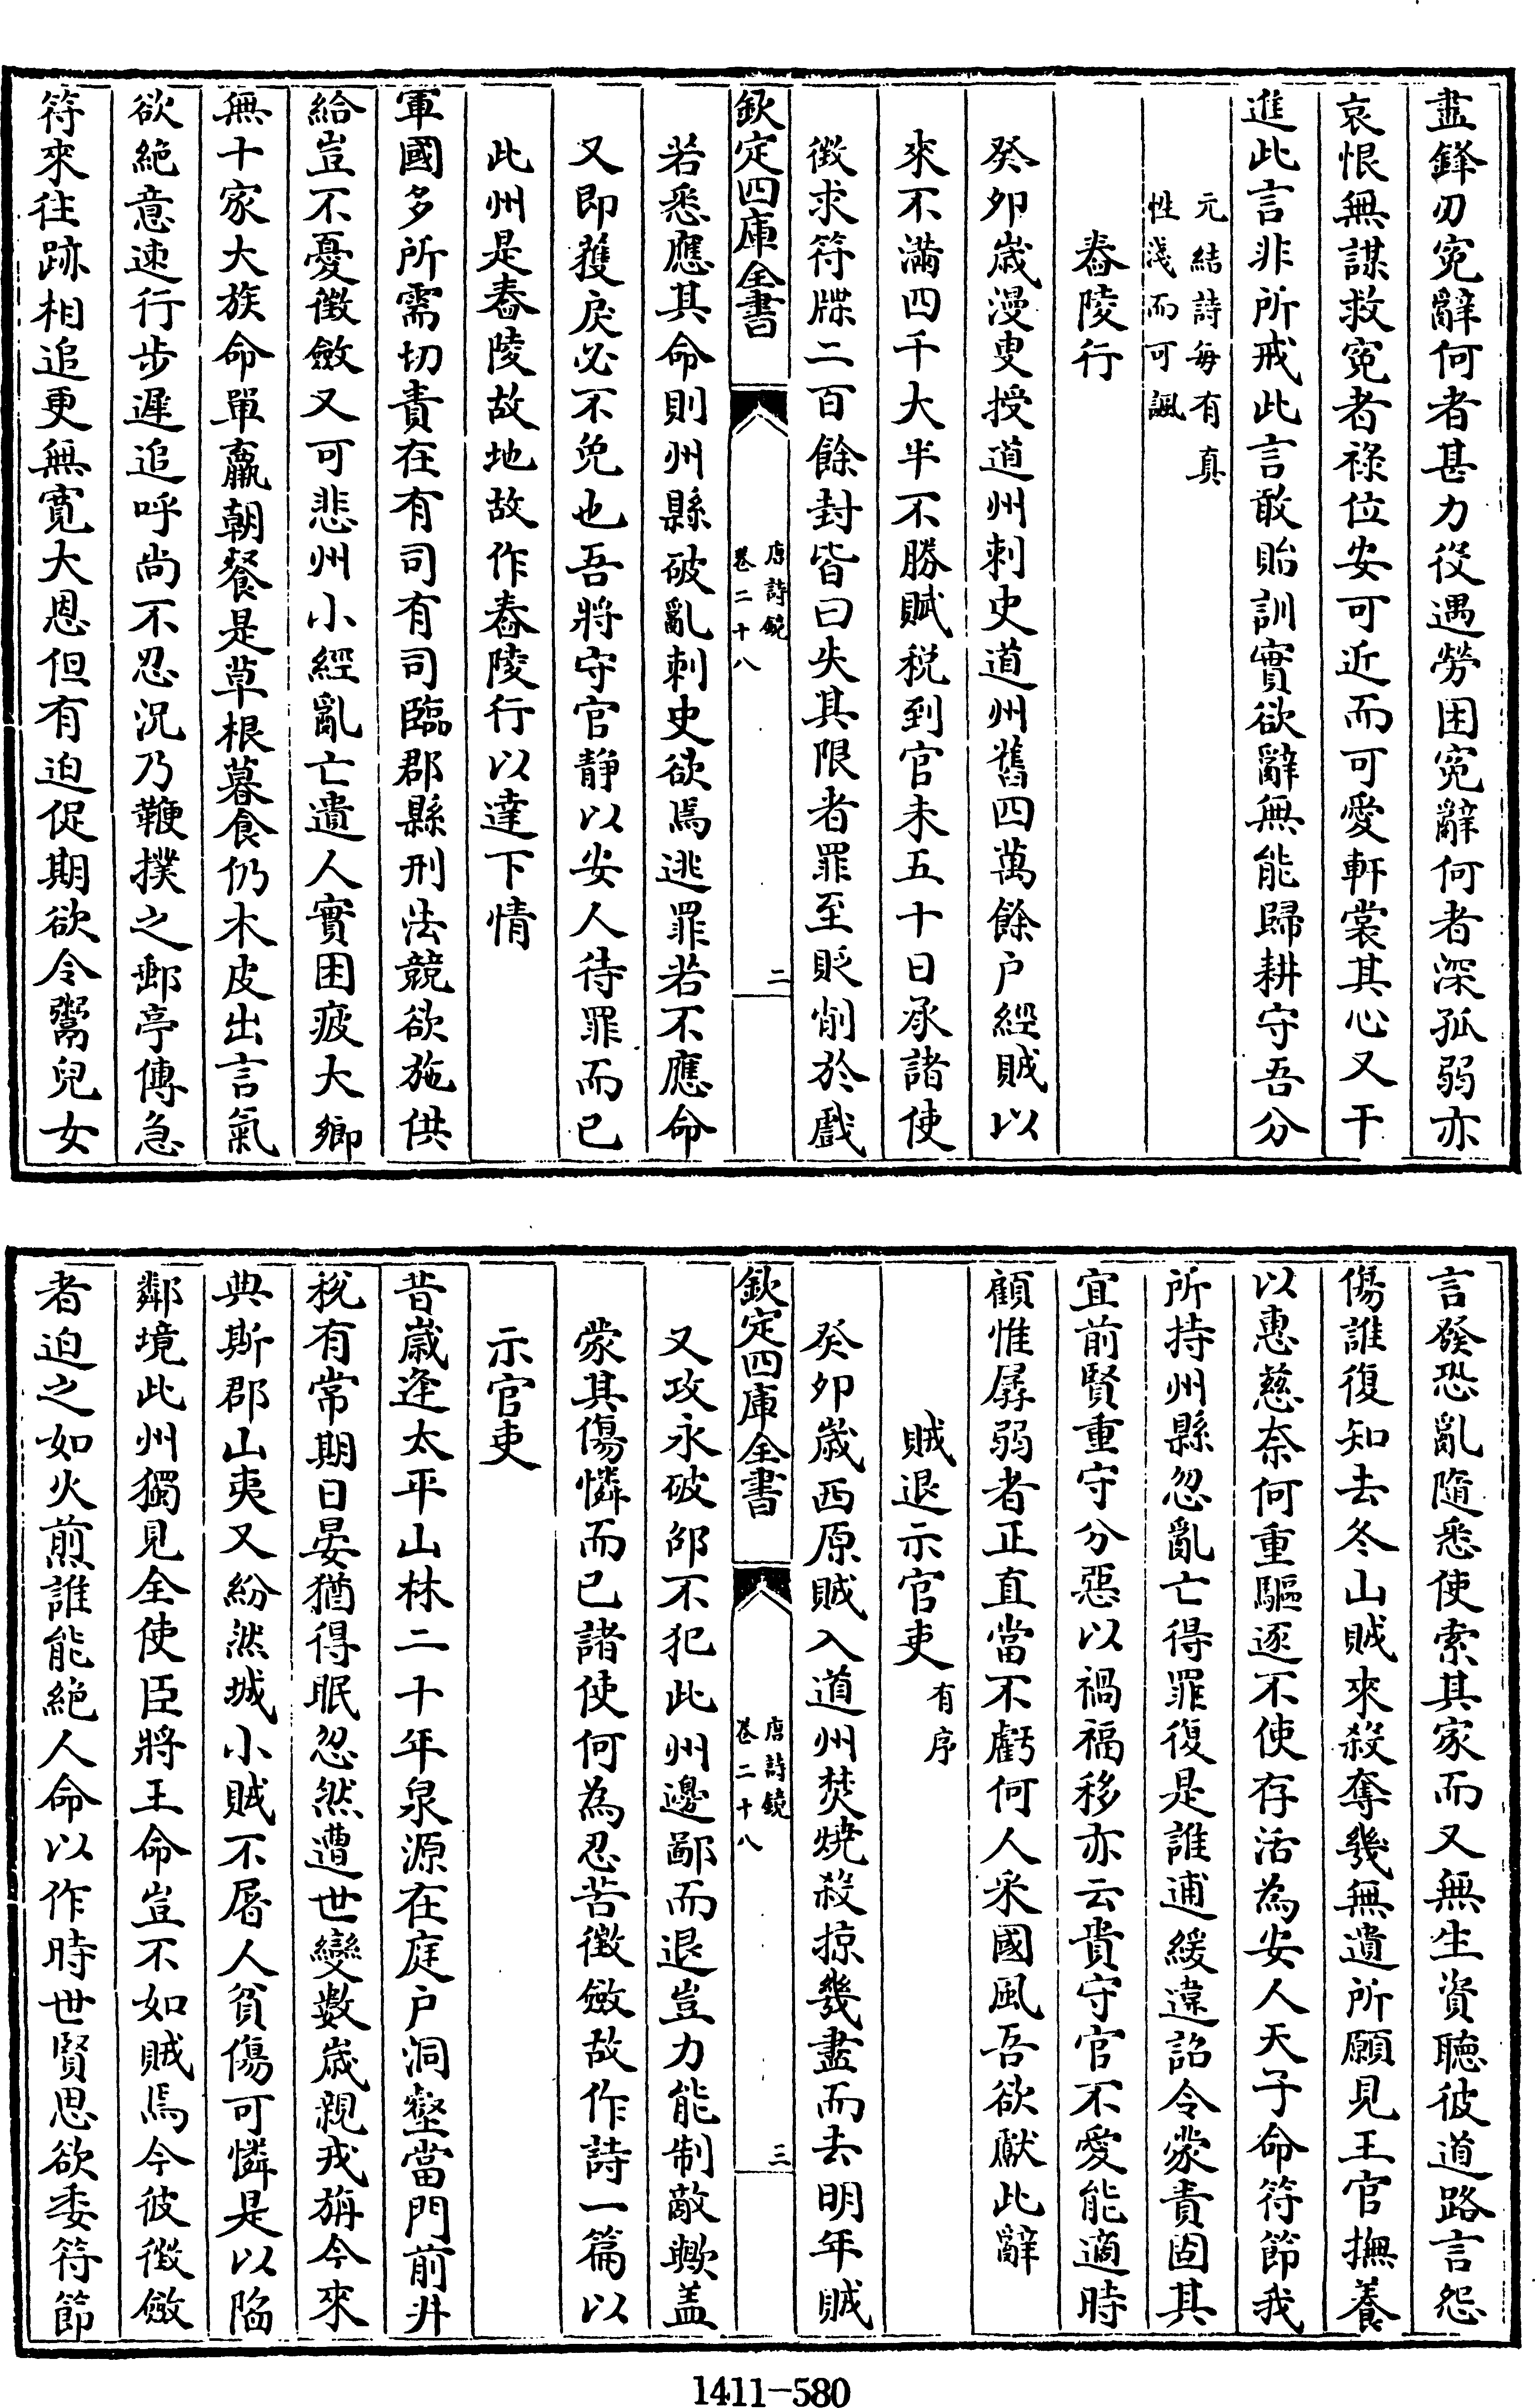 盡鋒刃寃辭何者甚力役遇勞困寃辭何者深孤弱亦
哀恨無謀救寃者祿位安可近而可愛軒裳其心又干
進此言非所戒此言敢貽訓實欲辭無能歸耕守吾分
元結詩每有真
性淺而可諷
舂陵行
癸卯歳漫叟授道州刺史道州舊四萬餘户經賊以
來不滿四千大半不勝賦税到官未五十日承諸使
徴求符牒二百餘封皆曰失其限者罪至貶削於戲
欽定四庫全書
唐詩鏡
卷二十八
二
若悉應其命則州縣破亂刺史欲焉逃罪若不應命
又即獲戾必不免也吾將守官静以安人待罪而已
此州是舂陵故地故作舂陵行以達下情
軍國多所需切責在有司有司臨郡縣刑法競欲施供
給豈不憂徴斂又可悲州小經亂亡遺人實困疲大鄉
無十家大族命單羸朝餐是草根暮食仍木皮出言氣
欲絶意速行步遲追呼尚不忍況乃鞭撲之郵亭傳急
符來往跡相追更無寛大恩但有迫促期欲令鬻兒女
言發恐亂隨悉使索其家而又無生資聴彼道路言怨
傷誰復知去冬山賊來殺奪幾無遺所願見王官撫養
以惠慈奈何重驅逐不使存活為安人天子命符節我
所持州縣忽亂亡得罪復是誰逋緩違詔令蒙責固其
宜前賢重守分惡以禍福移亦云貴守官不愛能適時
顧惟孱弱者正直當不虧何人采國風吾欲獻此辭
賊退示官吏有序
癸卯歳西原賊入道州焚燒殺掠幾盡而去明年賊
欽定四庫全書
唐詩鏡
卷二十八
三
又攻永破邵不犯此州邊鄙而退豈力能制敵歟盖
蒙其傷憐而已諸使何為忍苦徴斂故作詩一篇以
示官吏
昔歳逢太平山林二十年泉源在庭户洞壑當門前井
税有常期日晏猶得眠忽然遭世變數歳親戎旃今來
典斯郡山夷又紛然城小賊不屠人貧傷可憐是以陷
鄰境此州獨見全使臣將王命豈不如賊焉今彼徴斂
者迫之如火煎誰能絶人命以作時世賢思欲委符節
1411-580